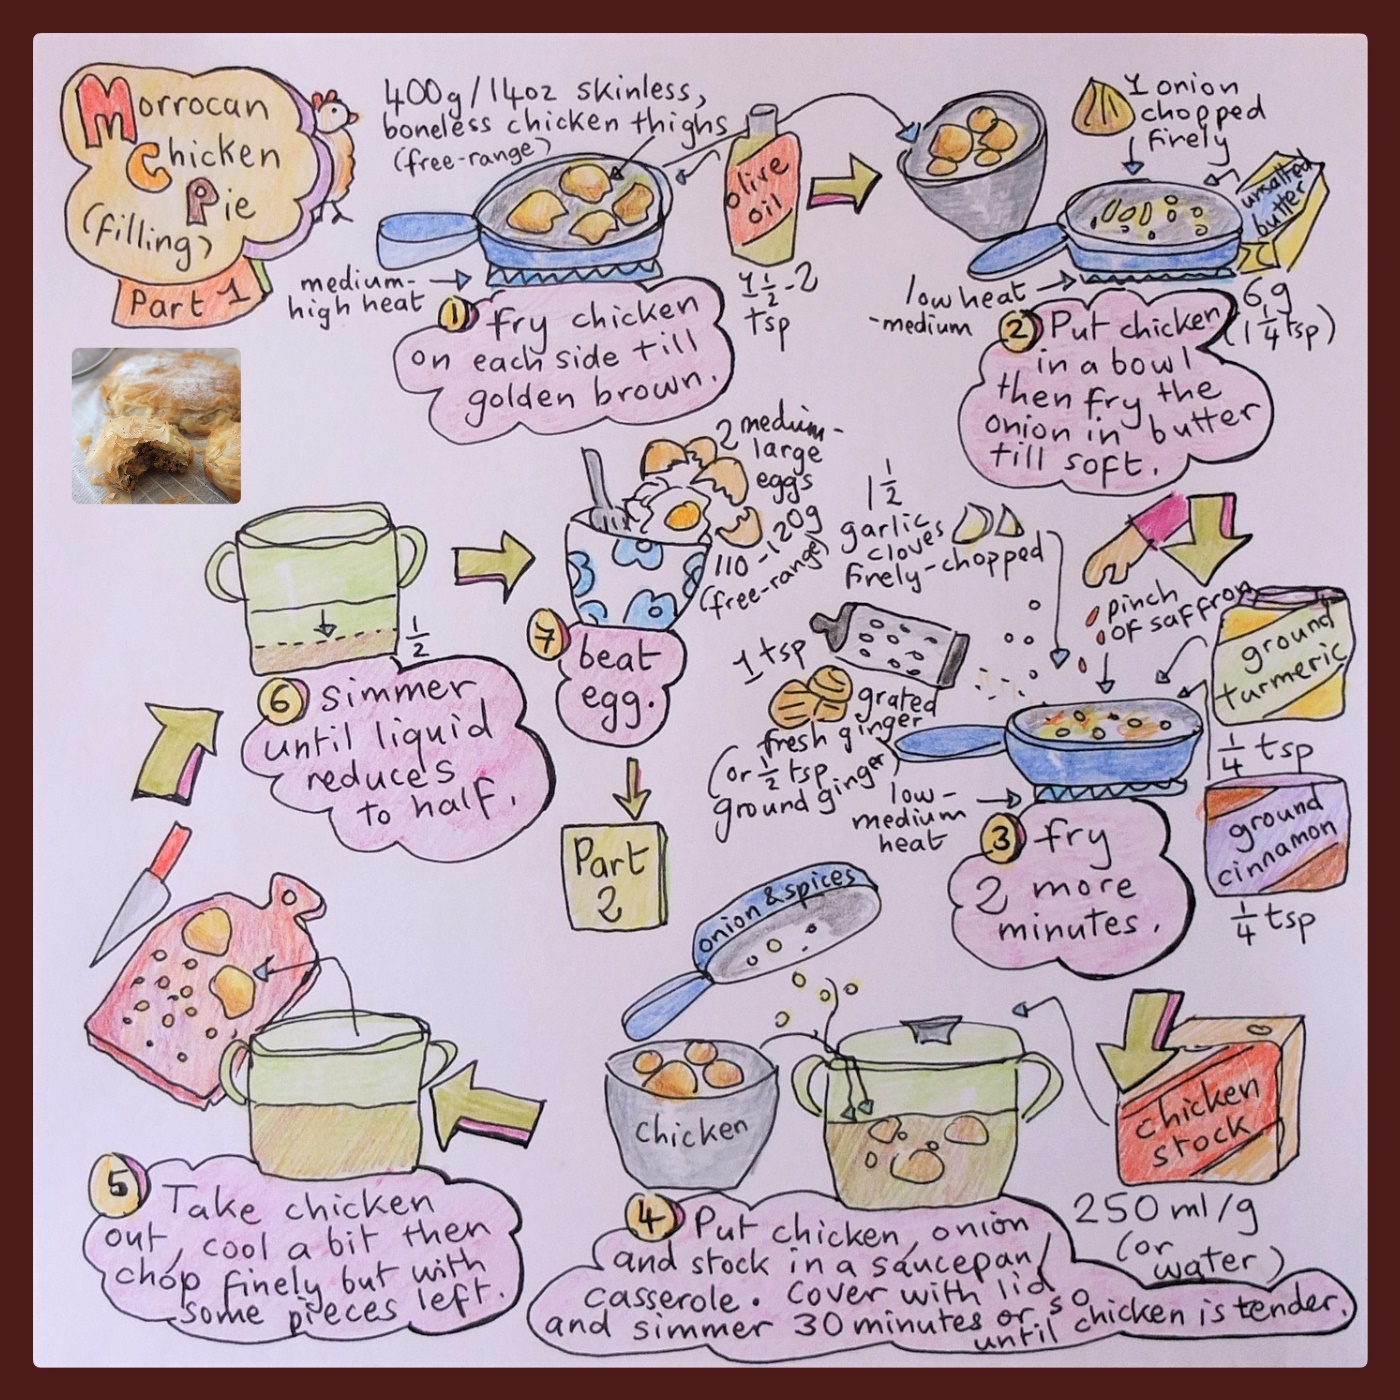 Morrocan
Chicken
Pie
(filling)
Part 1
400g/14oz skinless,
boneless chicken thighs
(free-range)
olive
oil
1 1/2-2
tsp
medium-
high heat
1 fry chicken
on each side till
golden brown.
1 onion
chopped
finely
unsalted
butter
6g
(1 1/4 tsp)
low heat
-medium
2 Put chicken
in a bowl
then fry the
onion in butter
till soft.
1 1/2
garlic
cloves
finely-chopped
pinch
of saffron
ground
turmeric
1/4 tsp
ground
cinnamon
1/4 tsp
1 tsp
grated
fresh ginger
(or 1/2 tsp
ground ginger)
low-
medium
heat
3 fry
2 more
minutes.
onion & spices
chicken
chicken
stock
250 ml/g
(or
water)
4 Put chicken, onion
and stock in a saucepan/
casserole. Cover with lid
and simmer 30 minutes or so
until chicken is tender.
5 Take chicken
out, cool a bit then
chop finely but with
some pieces left.
1/2
6 simmer
until liquid
reduces
to half.
2 medium-
large
eggs
110-120g
(free-range)
7 beat
egg.
Part
2